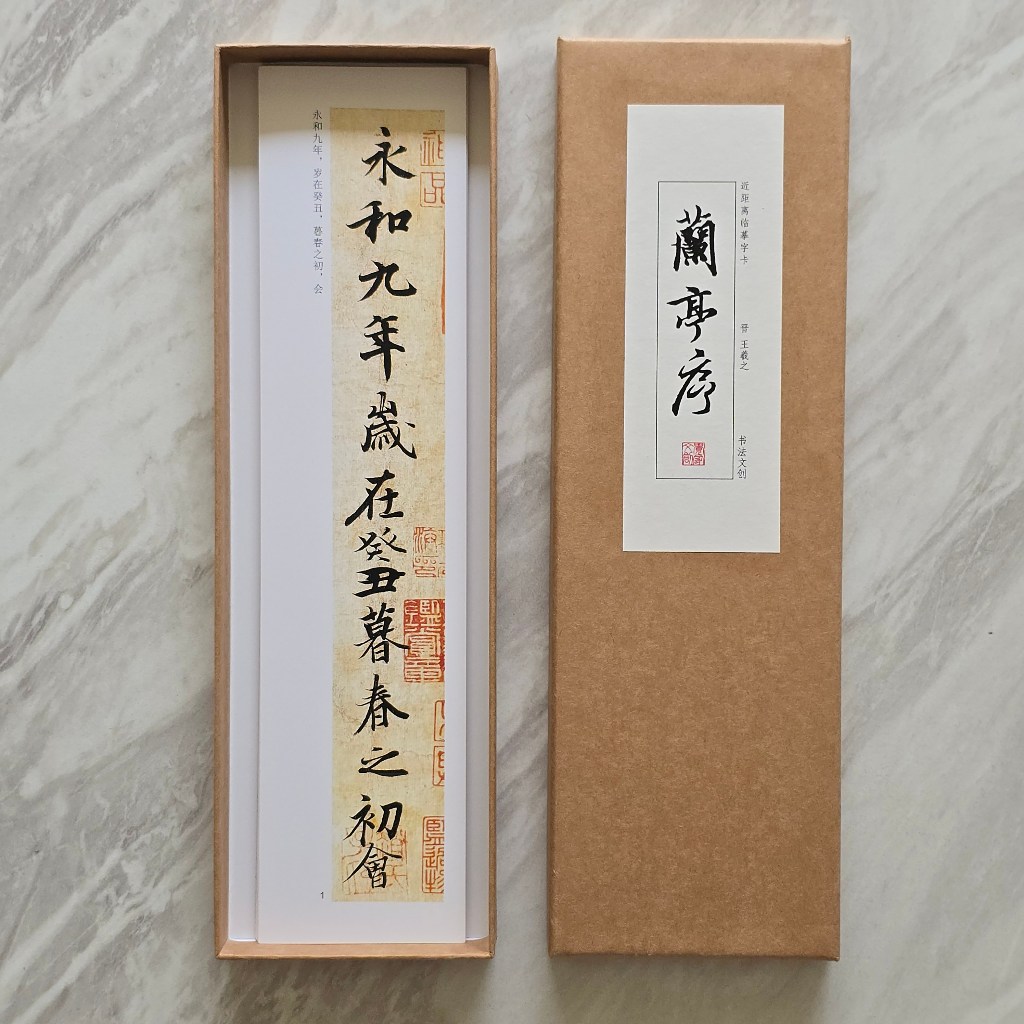 永和九年，岁在癸丑，暮春之初，会
永和九年歲在癸丑暮春之初會
1
近距离临摹字卡
晋 王羲之
书法文创
蘭亭序